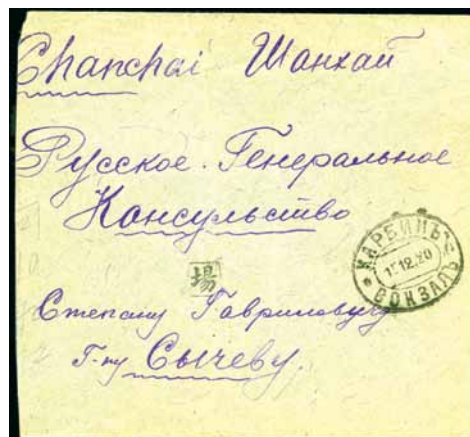 Chanchai Шанхай
Русское Генеральное
Консульство
ХАРБИНЪ
15 12 20
ВОКЗАЛЪ
Степану Гавриловичу
Г-ну Сычеву.